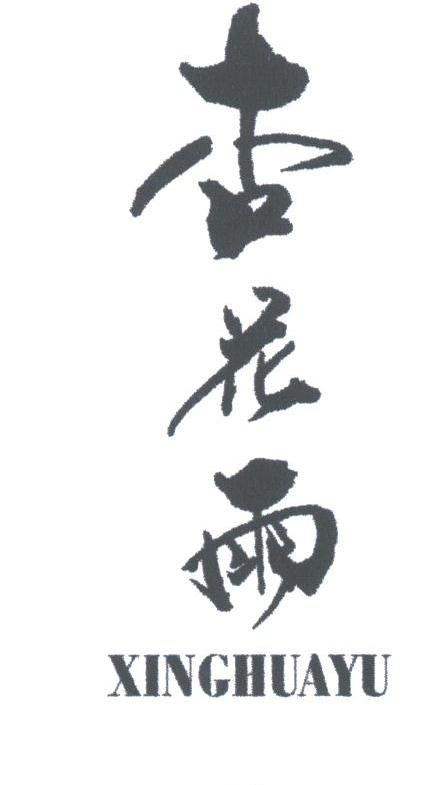 杏花雨
XINGHUAYU